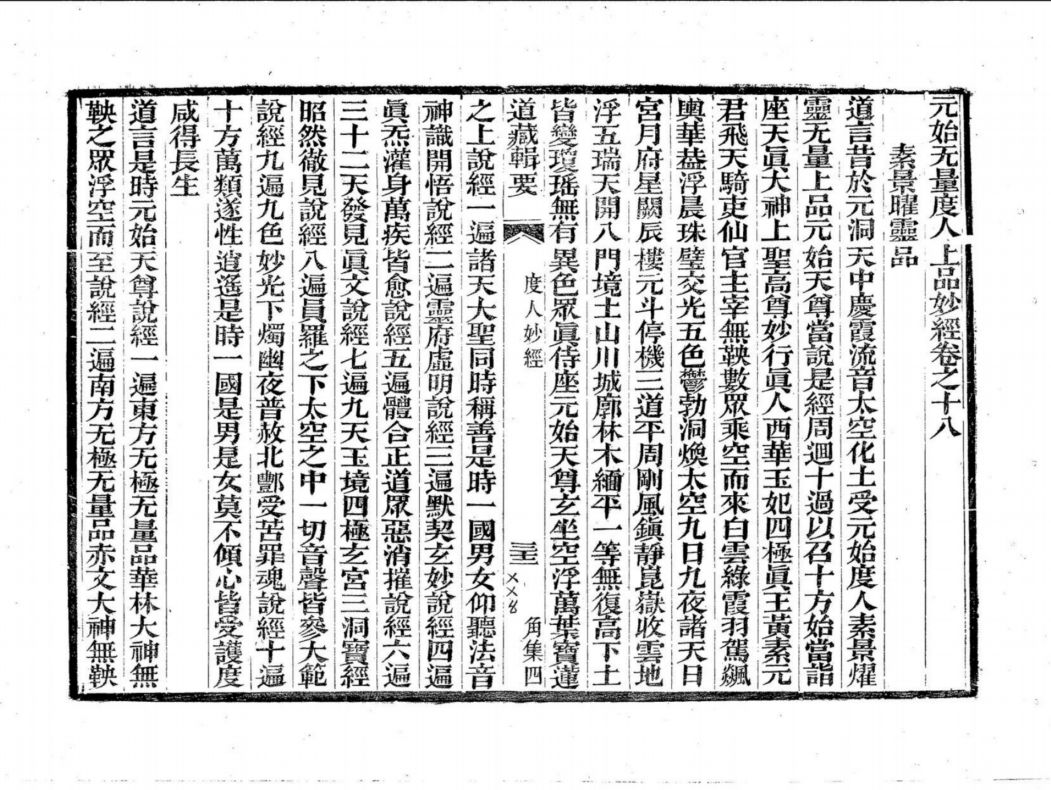 元始无量度人上品妙經卷之十八
素景曜靈品
道言昔於元洞天中慶霞流音太空化土受元始度人素景燿
靈无量上品元始天尊當說是經周迴十過以召十方始當詣
座天眞大神上聖高尊妙行眞人西華玉妃四極眞王黃素元
君飛天騎吏仙官主宰無鞅數眾乘空而來白雲綠霞羽駕飆
輿華葢浮晨珠璧交光五色鬱勃洞煥太空九日九夜諸天日
宮月府星闕辰樓元斗停機三道平周剛風鎭靜崑嶽收雲地
浮五瑞天開八門境土山川城廓林木緬平一等無復高下土
皆變瓊瑤無有異色眾眞侍座元始天尊玄坐空浮萬葉寶蓮
道藏輯要
度人妙經
角集四
之上說經一遍諸天大聖同時稱善是時一國男女仰聽法音
神識開悟說經二遍靈府虛明說經三遍默契玄妙說經四遍
眞炁灌身萬疾皆愈說經五遍體合正道眾惡消摧說經六遍
三十二天發見眞文說經七遍九天玉境四極玄宮三洞寶經
昭然徹見說經八遍員羅之下太空之中一切音聲皆參大範
說經九遍九色妙光下燭幽夜普赦北酆受苦罪魂說經十遍
十方萬類遂性逍遙是時一國是男是女莫不傾心皆受護度
咸得長生
道言是時元始天尊說經一遍東方无極无量品華林大神無
鞅之眾浮空而至說經二遍南方无極无量品赤文大神無鞅